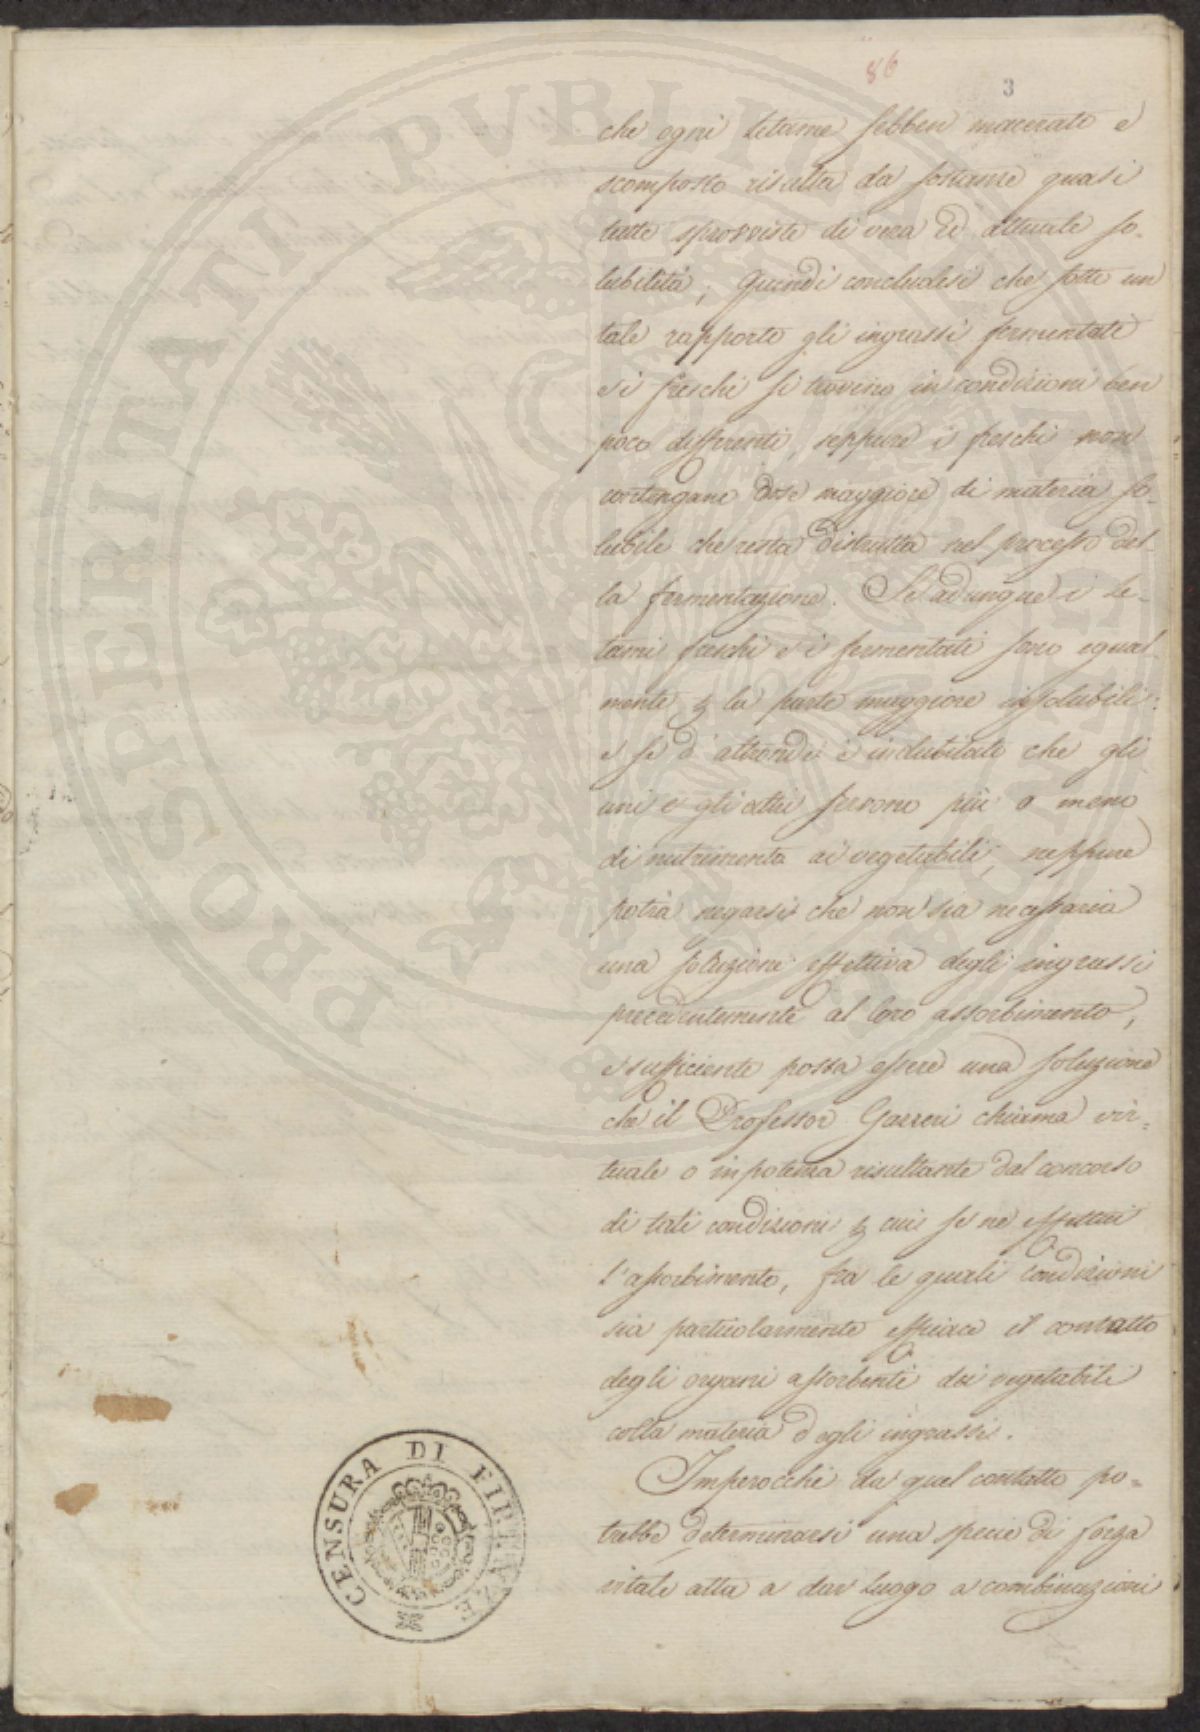 86
3
che ogni letame sebben macerato e
scomposto risulta da sostanze quasi
tutte sprovviste di vera ed attuale so-
lubilità; quindi concludesi che sotto un
tale rapporto gli ingrassi fermentati
ei freschi si trovino in condizioni ben
poco differenti, seppure i freschi non
contengano dose maggiore di materia so-
lubile che resta distrutta nel processo del-
la fermentazione. Se adunque i le-
tami freschi e i fermentati sono egual-
mente p la parte maggiore insolubili:
e se d'altronde è indubitato che gli
uni e gli altri servono più o meno
di nutrimento ai vegetabili, neppure
potrà negarsi che non sia necessaria
una soluzione effettiva degli ingrassi
precedentemente al loro assorbimento,
e sufficiente possa essere una soluzione
che il Professor Gazzeri chiama vir-
tuale o in potenza risultante dal concorso
di tali condizioni p cui se ne effettui
l'assorbimento, fra le quali condizioni
sia particolarmente efficace il contatto
degli organi assorbenti dei vegetabili
colla materia degli ingrassi.
Imperocchè da quel contatto po-
trebbe determinarsi una specie di forza
vitale atta a dar luogo a combinazioni
CENSURA DI FIRENZE
PROSPERITATI PUBLICAE AUGENDAE